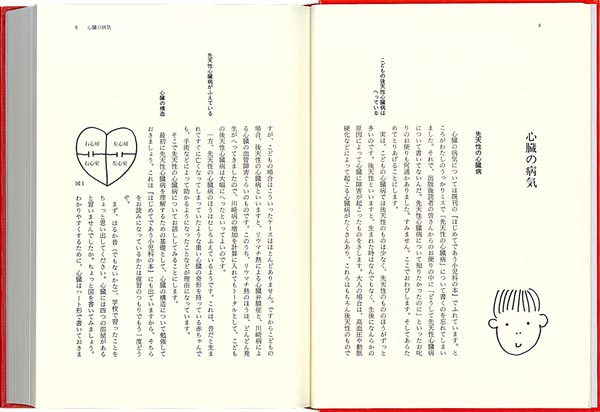 8
心臓の病気
先天性の心臓病
心臓の病気については既刊の『はじめてであう小児科の本』でふれています。と
ころがわたしのうっかりミスで「先天性の心臓病」について書くのを忘れてしまい
ました。それで、出版後読者の皆さんからのお便りの中に「どうして先天性心臓病
について書いてないんだ。先天性心臓病について知りたかったのに」といったお叱
りのお便りも何通かありました。すみません。ここでおわびします。そしてあらた
めてとりあげることにします。
こどもの後天性心臓病は
へっている
実は、こどもの心臓病では後天性のものは少なく、先天性のもののほうがずっと
多いのです。後天性といいますと、生まれた時はなんでもなく、生後になんらかの
原因によって心臓に障害が起こったものをさします。大人の場合は、高血圧や動脈
硬化などによって起こる心臓病がたくさんあり、これらはもちろん後天性のもので
9 心臓の病気
すが、こどもの場合はこういったケースはほとんどありません。ですからこどもの
場合、後天性の心臓病といいますと、リウマチ熱による心臓弁膜症と、川崎病によ
る心臓の血管障害ぐらいのものです。このうち、リウマチ熱のほうは、どんどん発
生がへってきましたので、川崎病の増加を計算に入れてもトータルとして、こども
の後天性心臓病は大幅にへったといってよいのです。
先天性心臓病がふえている
一方、先天性の心臓病のほうはむしろふえているようです。これは、昔だと生ま
れてすぐに亡くなってしまっていたような重い心臓の奇形を持っている赤ちゃんで
も、手術などによって助かるようになったことなどが理由になっています。
そこで先天性の心臓病についてお話ししてみることにします。
心臓の構造
最初に先天性心臓病を理解するための基礎として、心臓の構造について勉強して
おきましょう。これは『はじめてであう小児科の本』にも出ていますから、そちら
をお読みになっているかたは復習のつもりでもう一度どう
ぞ。
まず、はるか昔(でもないかな)、学校で習ったことを
ちょっと思い出してください。心臓には四つの部屋がある
と習いませんでしたか。ちょっと図を書いてみましょう。
わかりやすくするために、心臓はハート形で書いておきま
右心房
左心房
右心室
左心室
図1